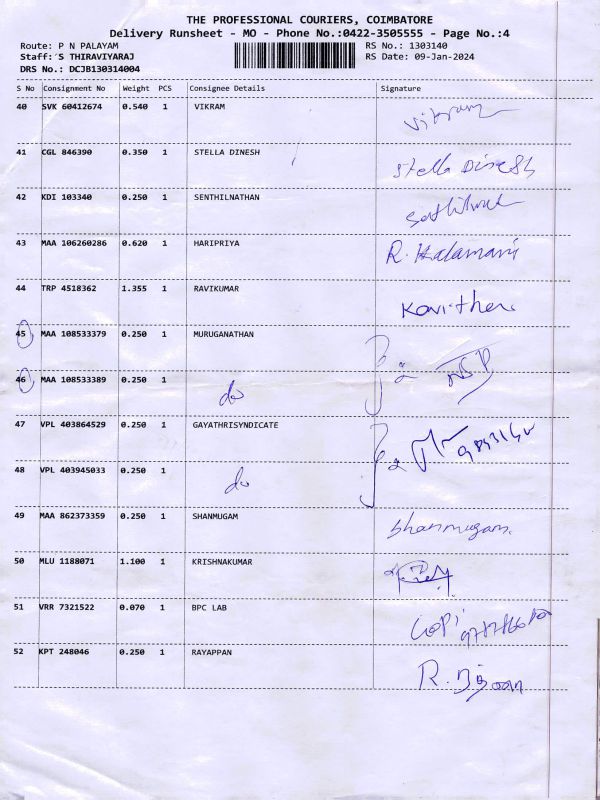 THE PROFESSIONAL COURIERS, COIMBATORE
Delivery Runsheet - MO - Phone No.:0422-3505555 - Page No.:4
Route: P N PALAYAM RS No.: 1303140
Staff: S THIRAVIYARAJ RS Date: 09-Jan-2024
DRS No.: DCJB130314004
S No Consignment No Weight PCS Consignee Details Signature
40 SVK 60412674 0.540 1 VIKRAM Vikram
41 CGL 846390 0.350 1 STELLA DINESH Stella Dinesh
42 KDI 103340 0.250 1 SENTHILNATHAN
43 MAA 106260286 0.620 1 HARIPRIYA R. Kalamani
44 TRP 4518362 1.355 1 RAVIKUMAR Kavitha
45 MAA 108533379 0.250 1 MURUGANATHAN
46 MAA 108533389 0.250 1 do
47 VPL 403864529 0.250 1 GAYATHRISYNDICATE
48 VPL 403945033 0.250 1 do
49 MAA 862373359 0.250 1 SHANMUGAM Shanmugam.
50 MLU 1188071 1.100 1 KRISHNAKUMAR
51 VRR 7321522 0.070 1 BPC LAB Gopi
52 KPT 248046 0.250 1 RAYAPPAN